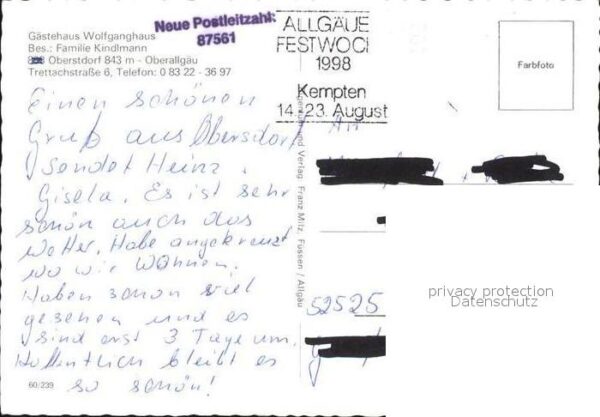 Gästehaus Wolfganghaus
Bes.: Familie Kindlmann
Oberstdorf 843 m - Oberallgäu
Trettachstraße 6, Telefon: 0 83 22 - 36 97
Neue Postleitzahl:
87561
ALLGÄUE
FESTWOCH
1998
Kempten
14.-23. August
Farbfoto
Einen schönen
Gruß aus Obersdorf
sendet Heinz,
Gisela. Es ist sehr
schön auch das
Wetter. Habe angekreuzt
wo wir Wohnen.
Haben schon viel
gesehen und es
sind erst 3 Tage um.
Hoffentlich bleibt es
so schön!
60/239
und Verlag Franz Milz, Füssen / Allgäu
An
52525
privacy protection
Datenschutz